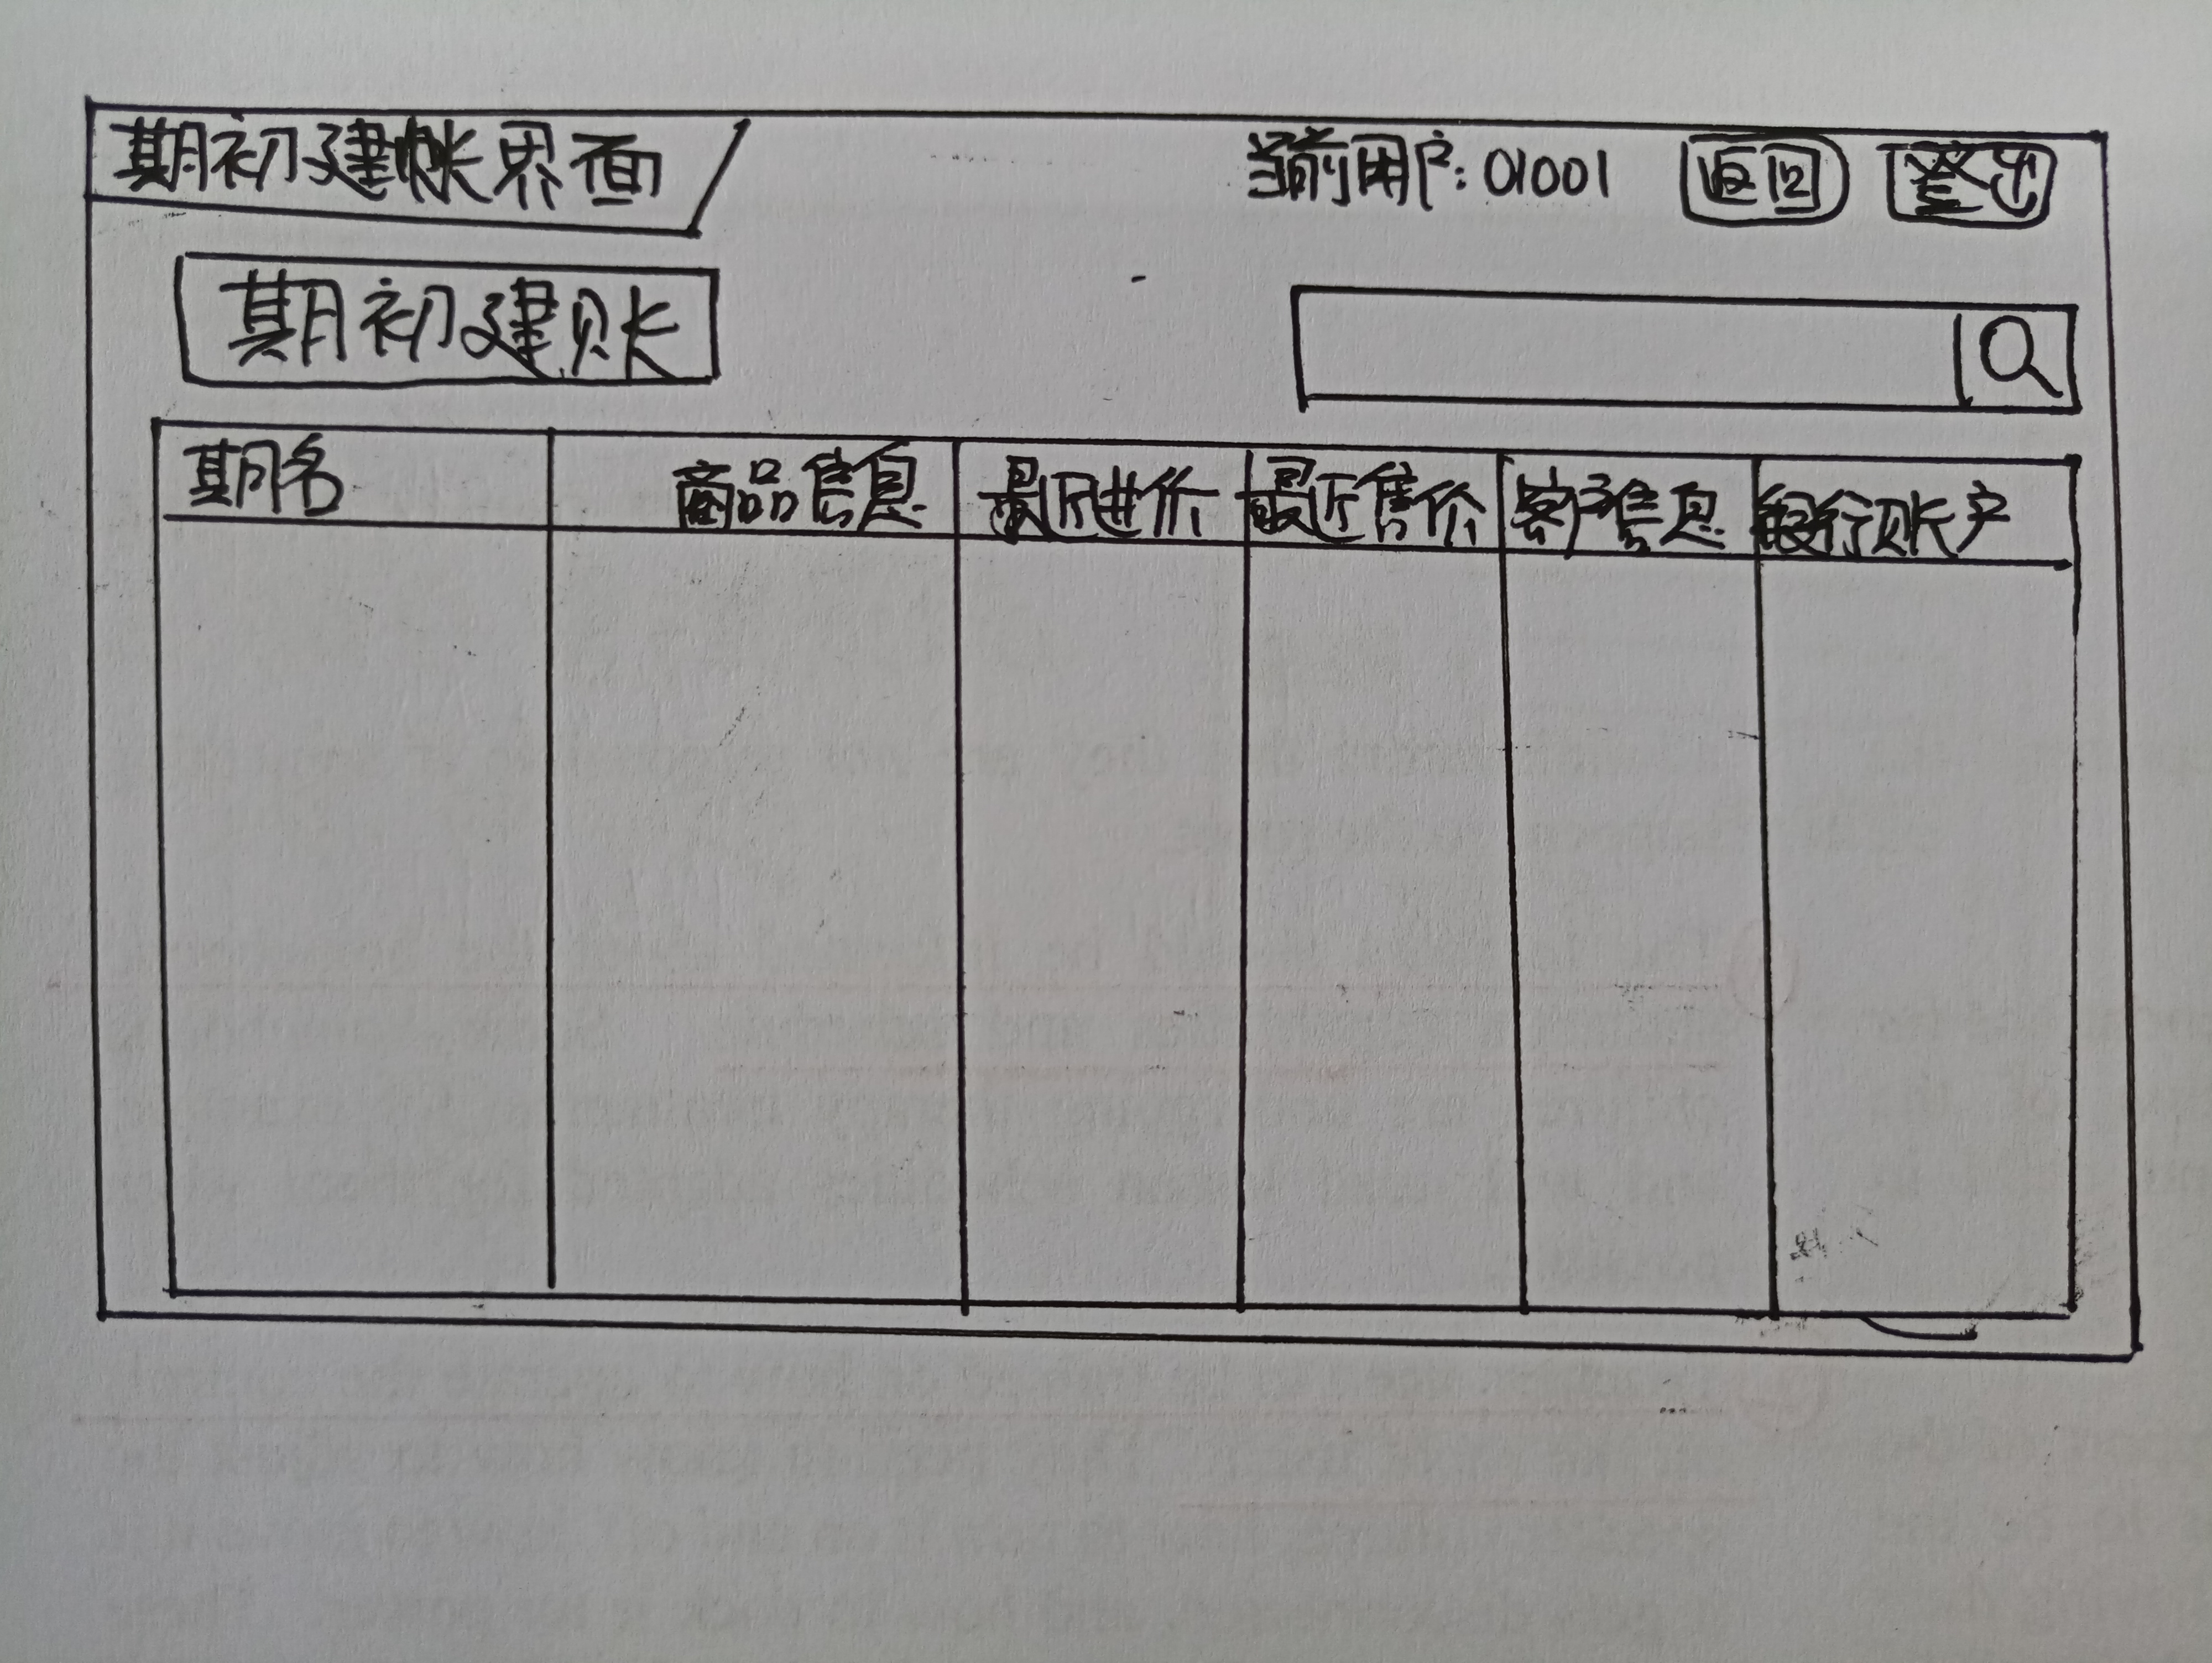 期初建帐界面 当前用户: 01001 返回 登出
期初建账
期名 商品信息 最近进价 最近售价 客户信息 银行账户